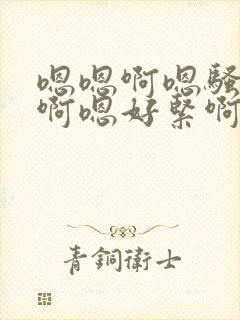 嗯嗯啊嗯骚
啊嗯好紧啊
青銅衛士